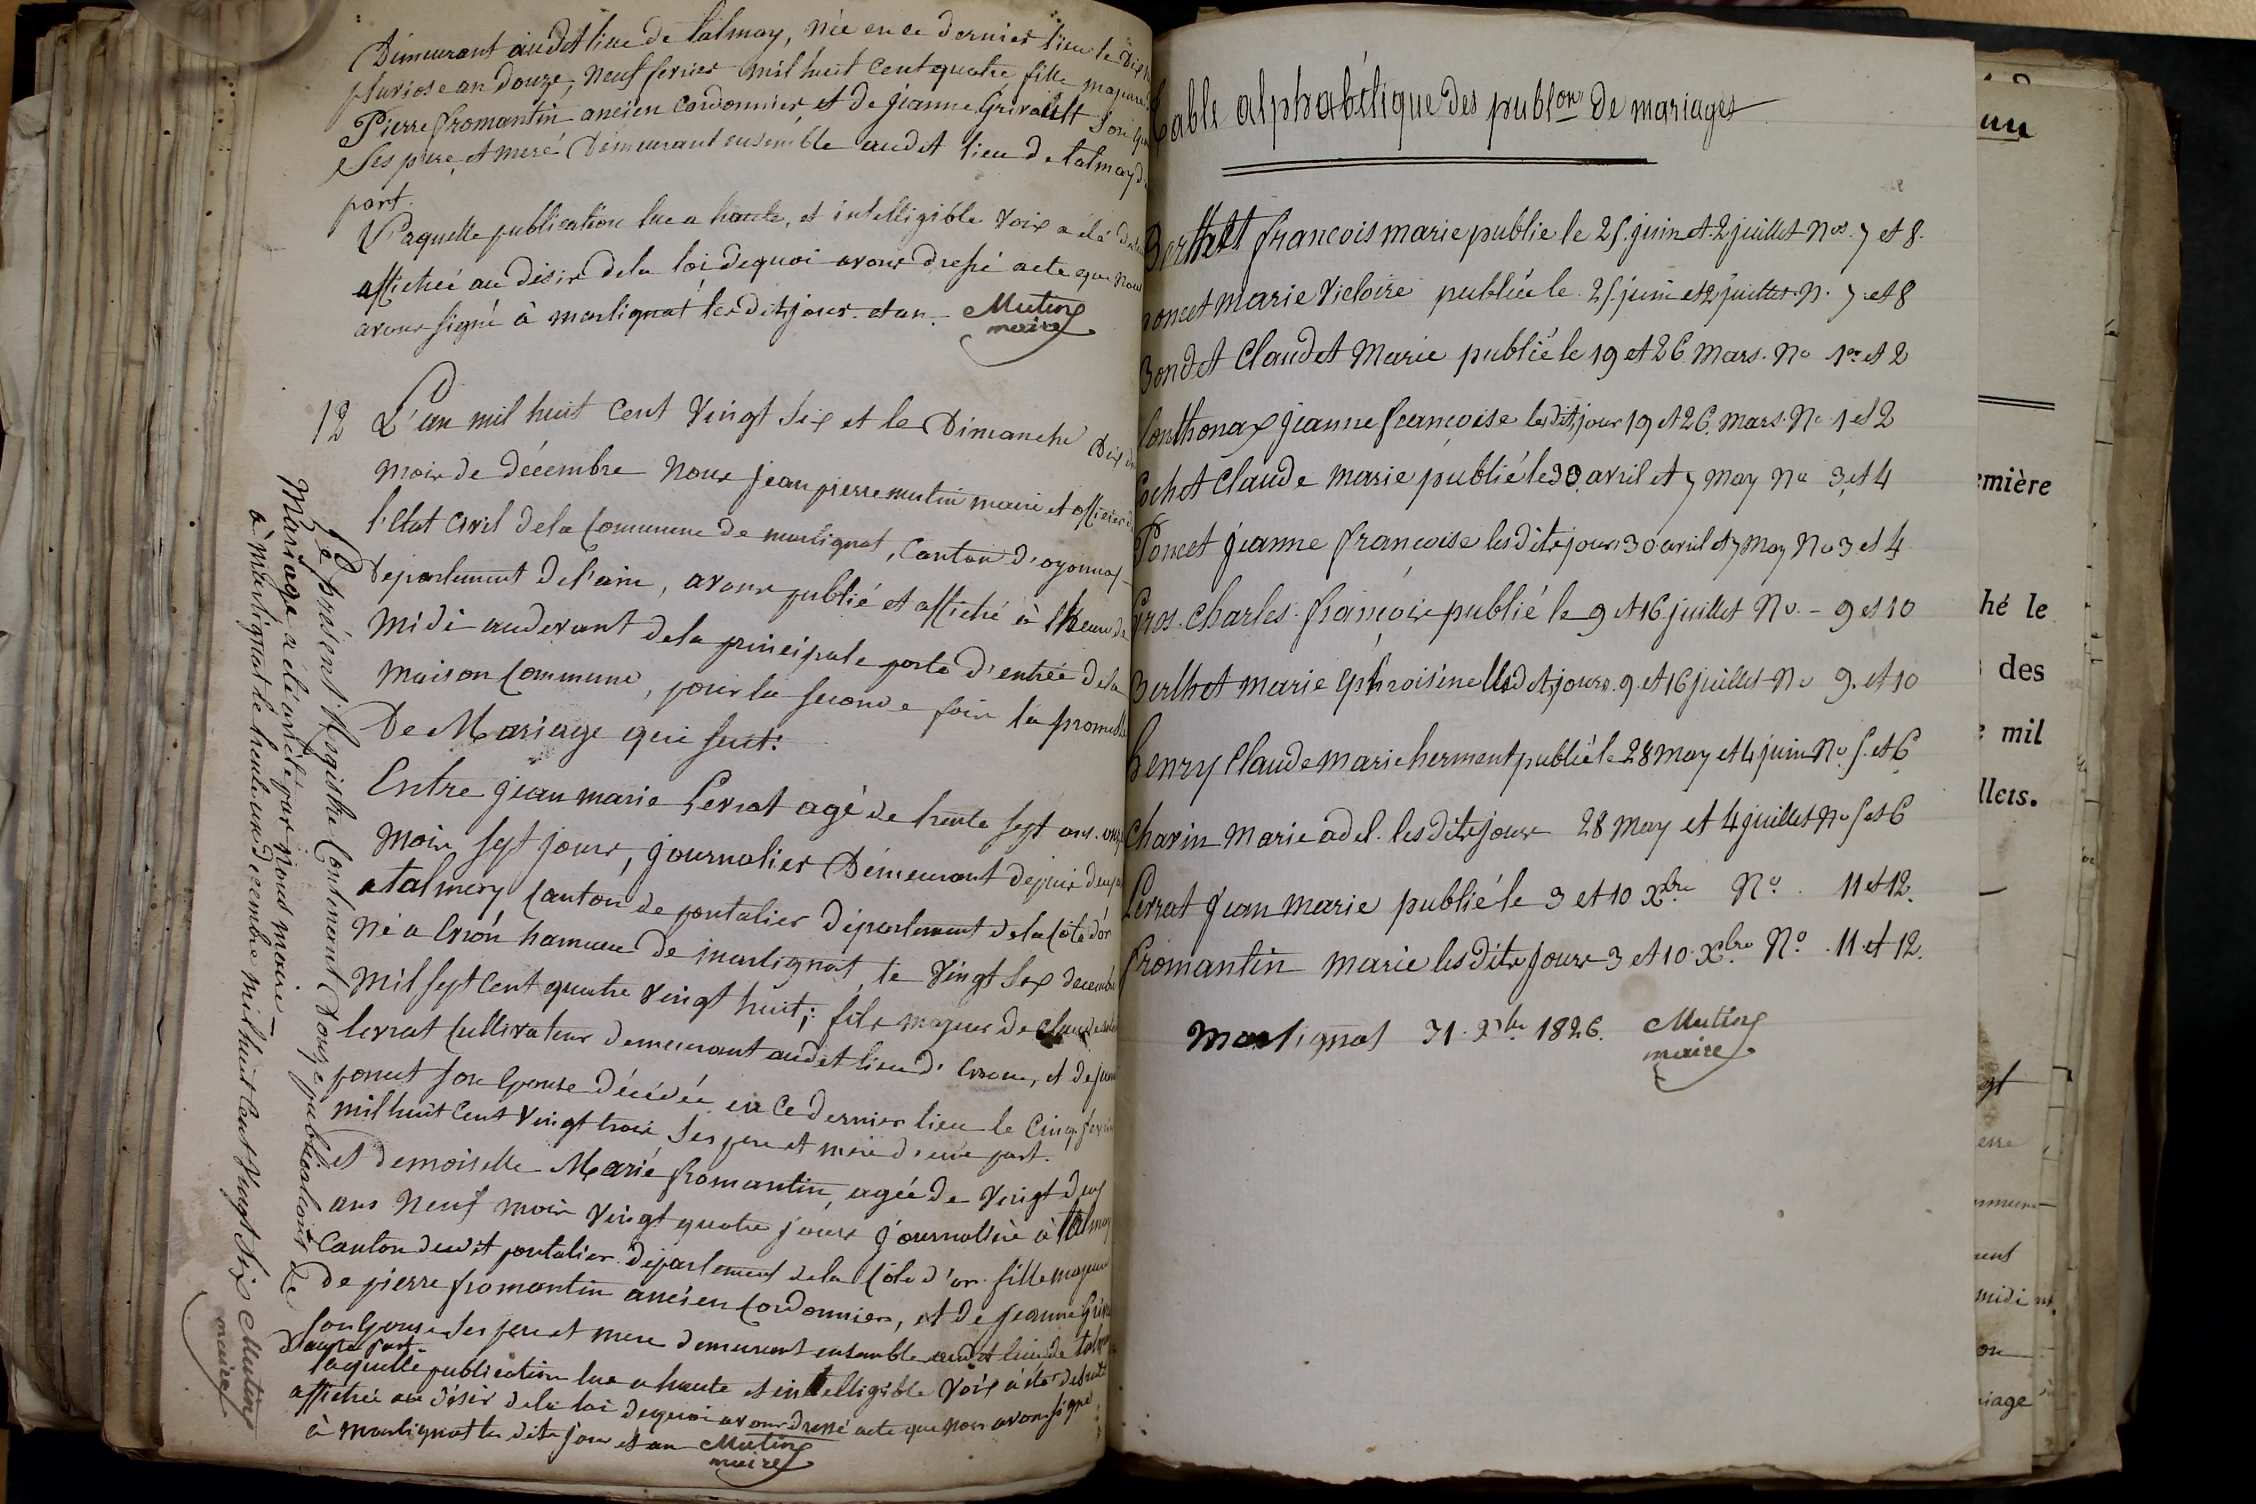 Demeurant audit lieu de talmay, née en ce dernier lieu le dix
pluviose an douze, neuf fevrier mil huit cent quatre fille majeure
Pierre fromantin ancien cordonnier, et de jeanne Grivault son
Ses pere, et mere Demeurant ensemble audit lieu de talmay d
part.
Laquelle publication lue a haute, et intelligible voix a été
affichée au désir de la loi dequoi avons dressé acte que nous
avons signé à martignat les dits jour et an. Mutin
maire
12 L'an mil huit cent vingt six et le Dimanche dix du
mois de décembre nous jean pierre mutin maire et officier de
l'état civil de la commune de martignat, canton d'oyonnax
Département de l'ain, avons publié et affiché à l'heure de
midi au devant de la principale porte d'entrée de la
maison commune, pour la seconde fois la promesse
De Mariage qui suit:
Entre jean marie Levrat agé de trente sept ans onze
mois sept jours, journalier Demeurant depuis deux
a talmay canton de pontalier département de la Côte d'or
né a Evron hameau de martignat, le vingt six decembre
mil sept cent quatre vingt huit; fils majeur de Claude
levrat cultivateur demeurant audit lieu d'Evron, et de
poncet son Epouse décédée en ce dernier lieu le cinq fevrier
mil huit cent vingt trois Ses pere et mere d'une part.
et demoiselle Marie fromantin, agée de vingt deux
ans neuf mois vingt quatre jours journalière à talmay
canton dudit pontalier département de la Côte d'or fille majeure
de pierre fromantin ancien cordonnier, et de jeanne Griva
son Epouse Ses pere et mere demeurant ensemble audit lieu de talmay
d'autre part.
laquelle publication lue a haute et intelligible voix a été de suite
affichée au désir de la loi dequoi avons dressé acte que nous avons signé
à martignat les dits jour et an Mutin
maire
Le présent Registre contenant douze publications de
Mariage a été arrêté par nous maire
à martignat le trente un decembre mil huit cent vingt six Mutin
maire
Table alphabétique des publon de mariages
Berthet francois marie publie le 25 juin et 2 juillet Nos. 7 et 8.
poncet Marie Victoire publiée le 25 juin et 2 juillet N. 7 et 8
Bondet Claudet Marie publié le 19 et 26 Mars. No 1er et 2
Conthonax jeanne francoise les dits jour 19 et 26 Mars. No 1 et 2
Cochet Claude Marie publié le 30 avril et 7 May No 3 et 4
Poncet jeanne francoise les dits jours 30 avril et 7 May No 3 et 4
Gros. Charles. françois publié le 9 et 16 juillet No. - 9 et 10
Berthet marie Ephroisine lesdits jours. 9 et 16 juillet No 9. et 10
henry Claude marie herment publié le 28 may et 4 juin No 5. et 6
Chavin Marie adel. les dits jours 28 may et 4 juillet No 5 et 6
Levrat jean marie publié le 3 et 10 Xbre No. 11 et 12.
fromantin marie les dits jours 3 et 10 Xbre No. 11 et 12.
Martignat 31. Xbre 1826. Mutin
maire
un
emière
hé le
des
mil
llets.